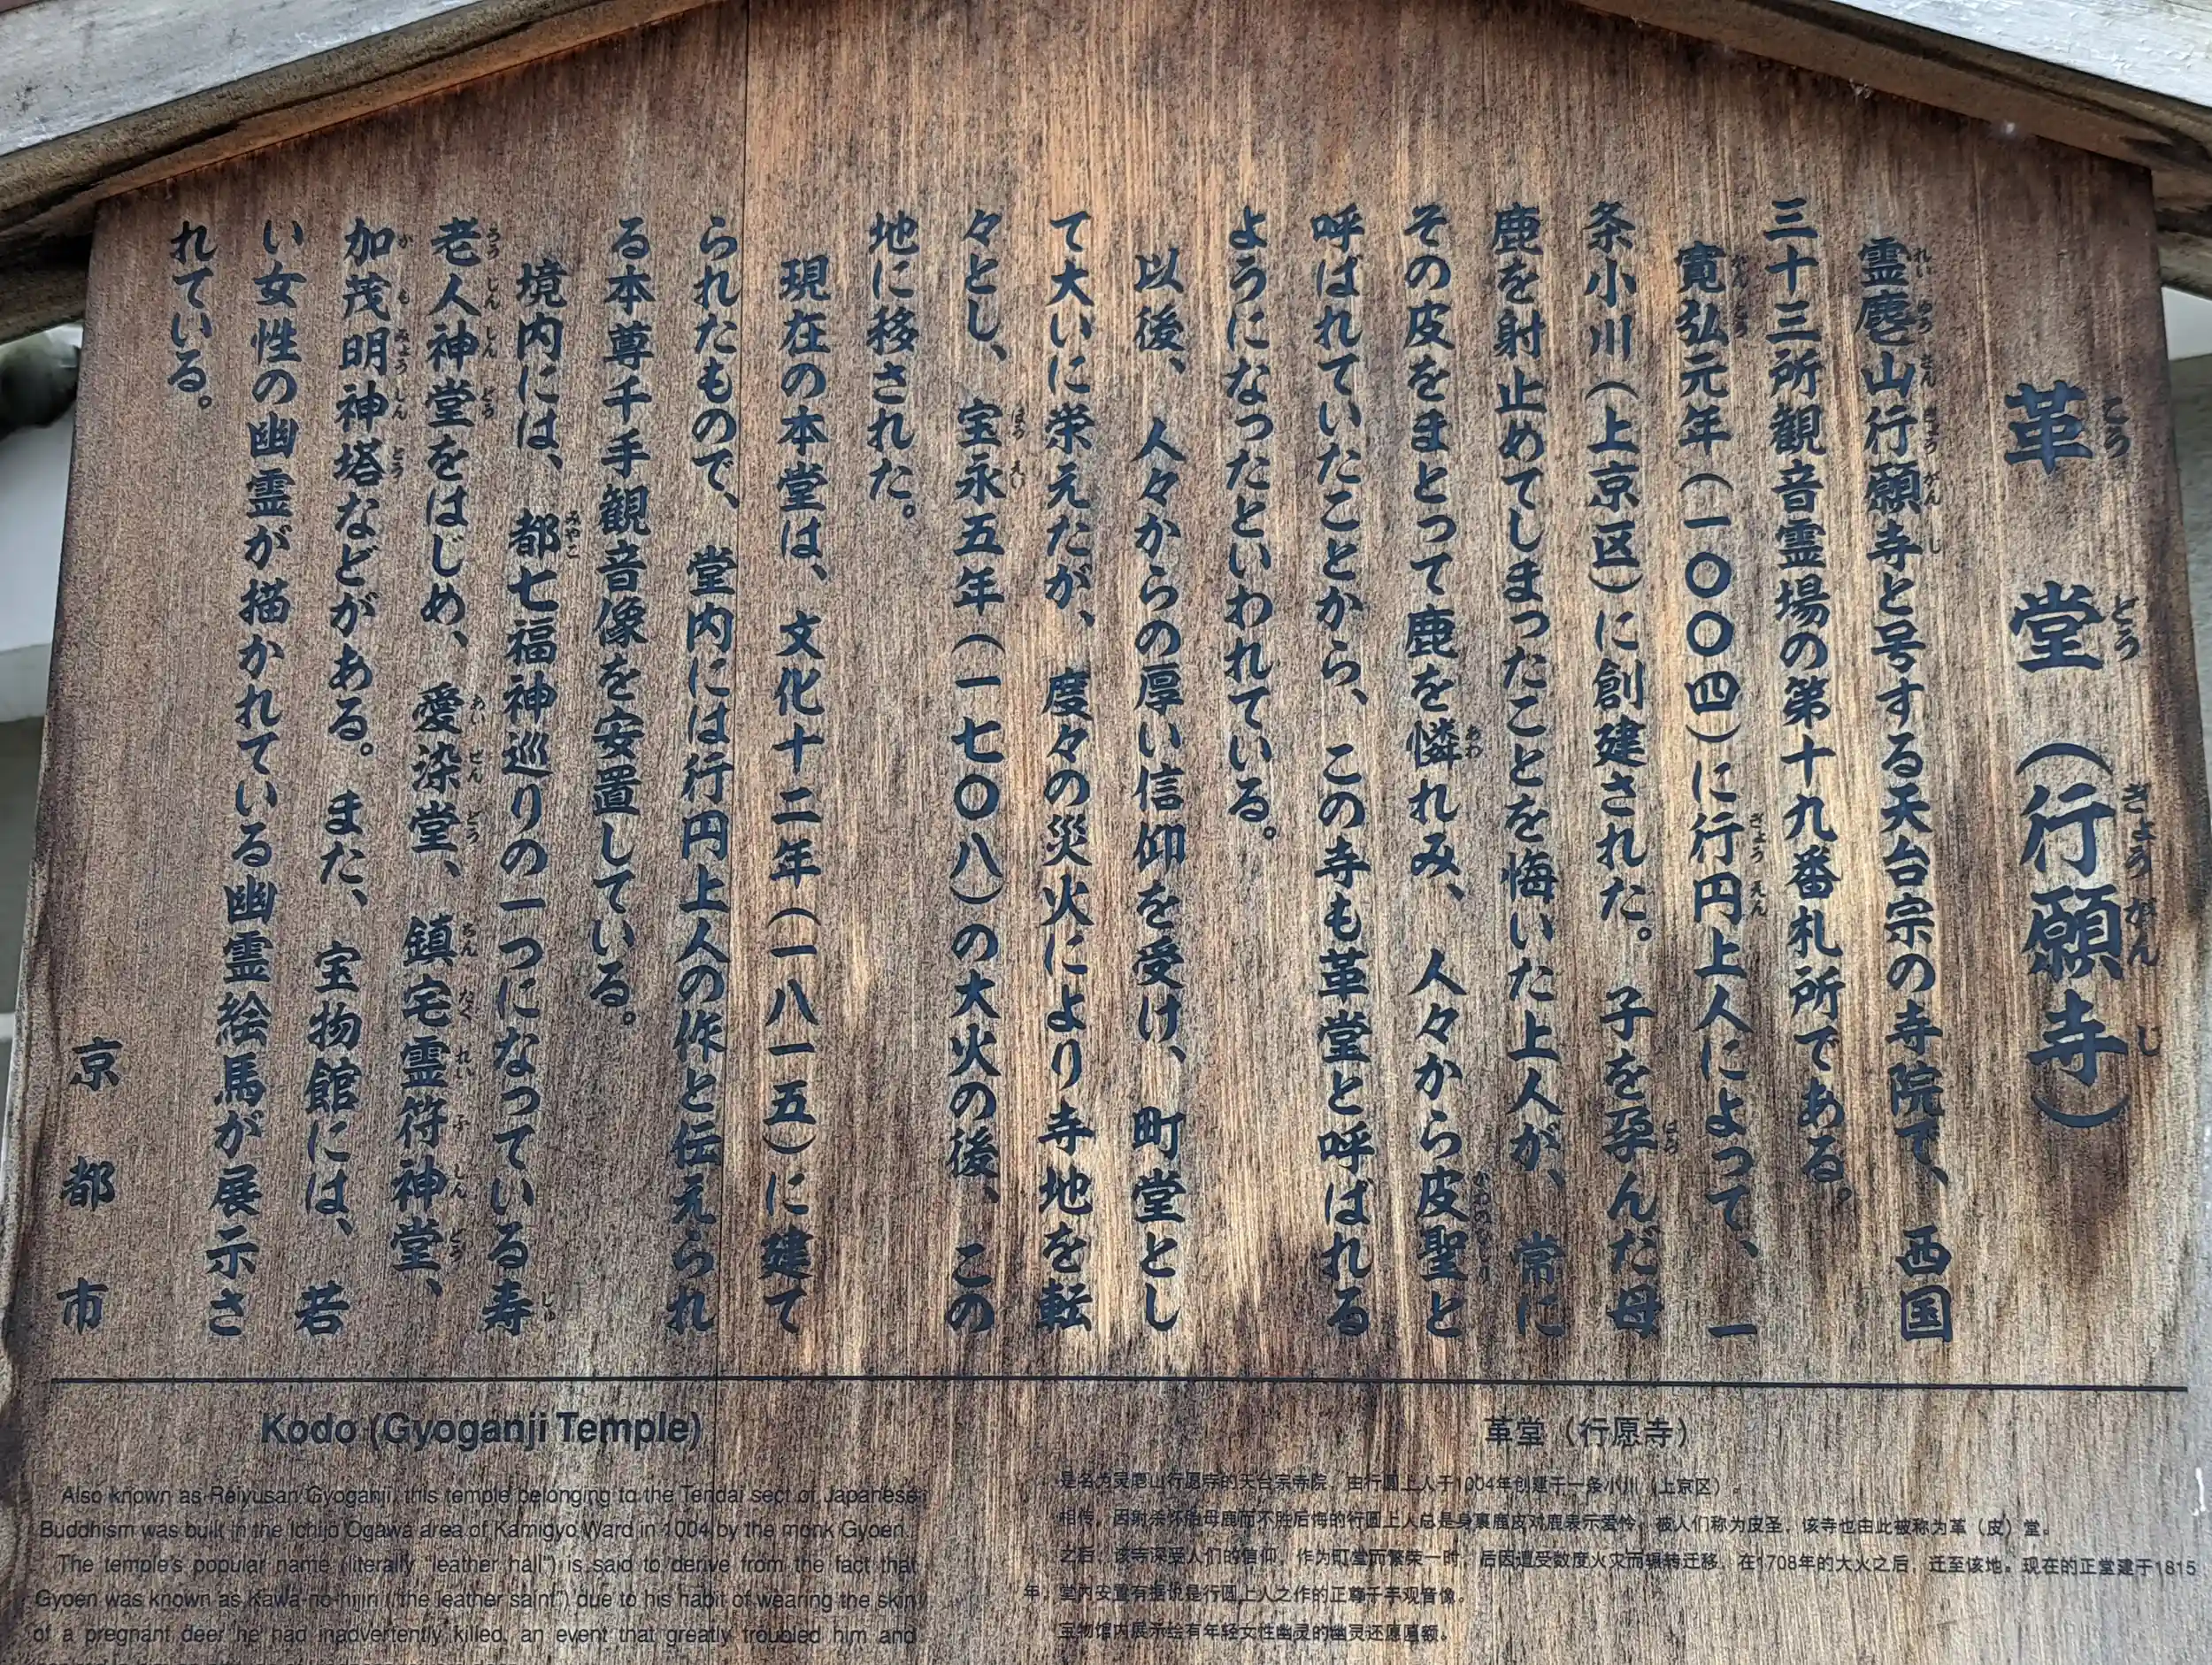 革堂（行願寺）
霊麀山行願寺と号する天台宗の寺院で、西国
三十三所観音霊場の第十九番札所である。
寛弘元年（一〇〇四）に行円上人によって、一
条小川（上京区）に創建された。子を孕んだ母
鹿を射止めてしまったことを悔いた上人が、常に
その皮をまとって鹿を憐れみ、人々から皮聖と
呼ばれていたことから、この寺も革堂と呼ばれる
ようになったといわれている。
以後、人々からの厚い信仰を受け、町堂とし
て大いに栄えたが、度々の災火により寺地を転
々とし、宝永五年（一七〇八）の大火の後、この
地に移された。
現在の本堂は、文化十二年（一八一五）に建て
られたもので、堂内には行円上人の作と伝えられ
る本尊千手観音像を安置している。
境内には、都七福神巡りの一つになっている寿
老人神堂をはじめ、愛染堂、鎮宅霊符神堂、
加茂明神塔などがある。また、宝物館には、若
い女性の幽霊が描かれている幽霊絵馬が展示さ
れている。
京都市
Kodo (Gyoganji Temple)
Also known as Reiyusan Gyoganji, this temple belonging to the Tendai sect of Japanese
Buddhism was built in the Ichijo Ogawa area of Kamigyo Ward in 1004 by the monk Gyoen.
The temple's popular name (literally "leather hall") is said to derive from the fact that
Gyoen was known as Kawa-no-hijiri ("the leather saint") due to his habit of wearing the skin
of a pregnant deer he had inadvertently killed, an event that greatly troubled him and
革堂（行愿寺）
是名为灵麀山行愿寺的天台宗寺院，由行圆上人于1004年创建于一条小川（上京区）。
相传，因射杀怀胎母鹿而不胜后悔的行圆上人总是身裹鹿皮对鹿表示爱怜，被人们称为皮圣，该寺也由此被称为革（皮）堂。
之后，该寺深受人们的信仰，作为町堂而繁荣一时，后因遭受数度火灾而辗转迁移，在1708年的大火之后，迁至该地。现在的正堂建于1815
年，堂内安置有据说是行圆上人之作的正尊千手观音像。
宝物馆内展示绘有年轻女性幽灵的幽灵还愿匾额。